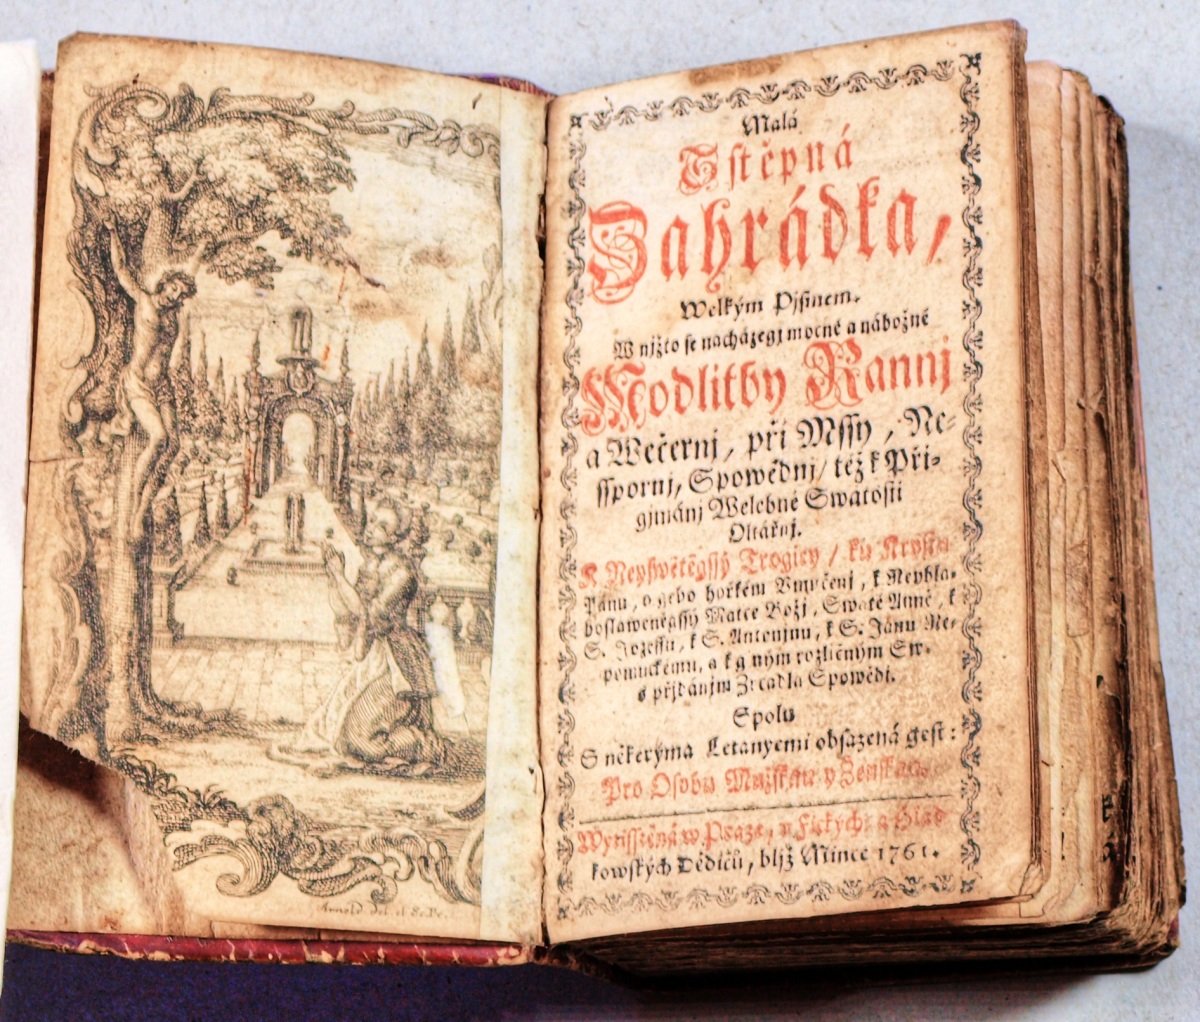 Arnold del. et Sc. Pr.
Malá
Sstěpná
Zahrádka,
Welkým Pjsmem.
W njžto se nacházegj mocné a nábožné
Modlitby Rannj
a Wečernj, při Mssy, Ne-
sspornj, Spowědnj/ též k Při-
gjmánj Welebné Swátosti
Oltářnj.
K Neyswětěgssý Trogicy/ ku Krystu
Pánu, o geho hořkém Vmučenj, k Neybla-
hoslaweněgssý Matce Božj, Swaté Anně, k
S. Jozeffu, k S. Antonjnu, k S. Janu Ne-
pomuckému, a k giným rozličným Sw.
s přjdánjm Zrcadla Spowědi.
Spolu
S některýma Letanyemi obsažená gest:
Pro Osobu Mužskau y Ženskau.
Wytisstěná w Praze, v
kowských Dědičů, bljž Mince 1761.